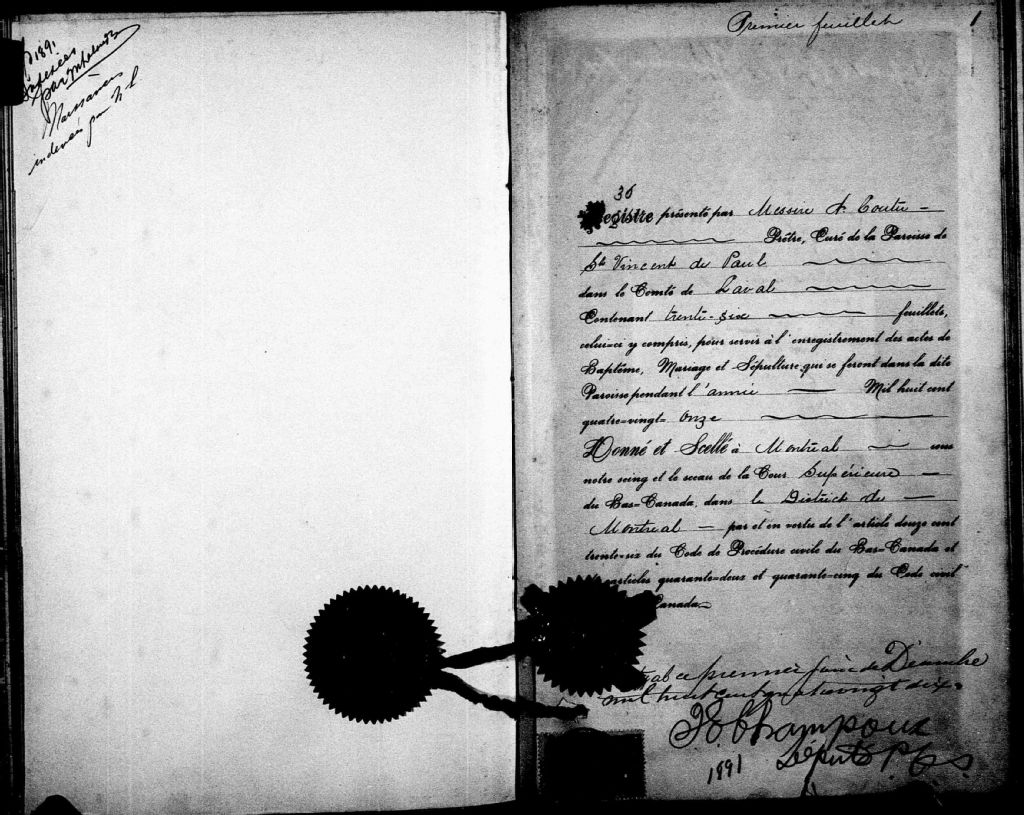 1891
par
Naissances
indexées par
Premier feuillet
1
36
Registre présenté par Messire A. Coutu
Prêtre, Curé de la Paroisse de
St Vincent de Paul
dans le Comté de Laval
Contenant trente-six feuillets,
celui-ci y compris, pour servir à l'enregistrement des actes de
Baptême, Mariage et Sépulture, qui se feront dans la dite
Paroisse pendant l'année Mil huit cent
quatre-vingt-onze
Donné et Scellé à Montréal sous
notre seing et le sceau de la Cour Supérieure
du Bas-Canada, dans le District de
Montréal par et en vertu de l'article douze cent
trente-six du Code de Procédure civile du Bas-Canada et
articles quarante-deux et quarante-cinq du Code civil
Canada
ce premier jour de Décembre
mil huit cent quatrevingt dix.
Champoux
Député P.C.S.
1891